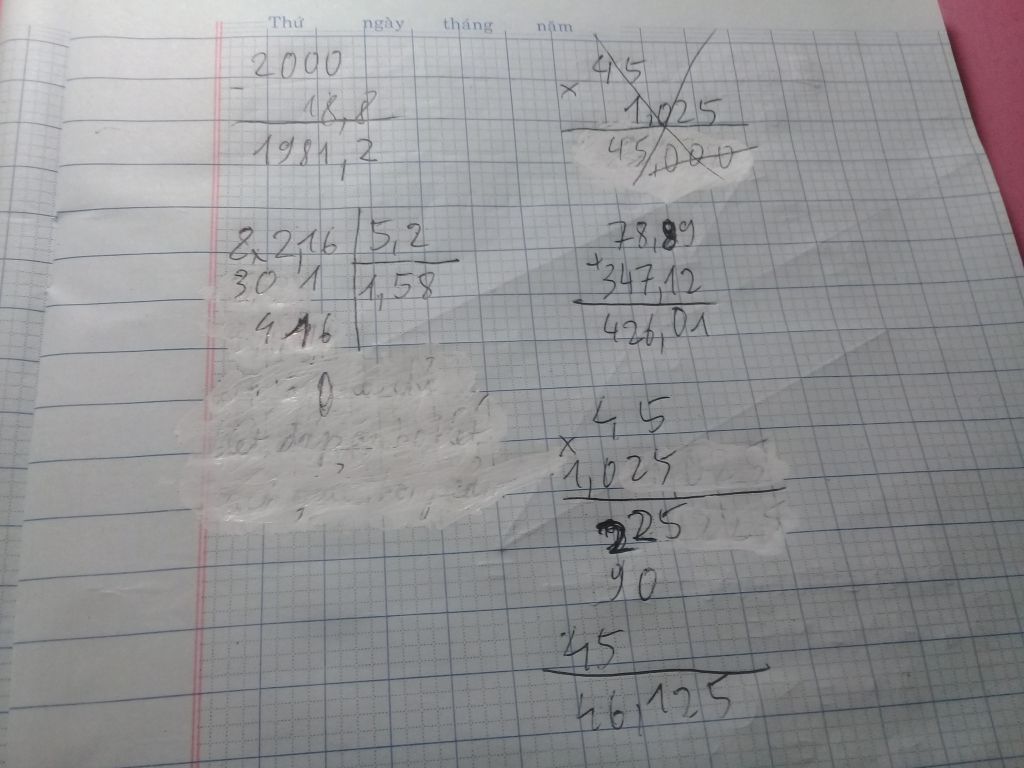 Thứ ngày tháng năm
2000
-
18,8
1981,2
45
×
1,025
45,000
8,216 5,2
30 1 1,58
4 16
0
78,89
+
347,12
426,01
45
×
1,025
225
90
45
46,125